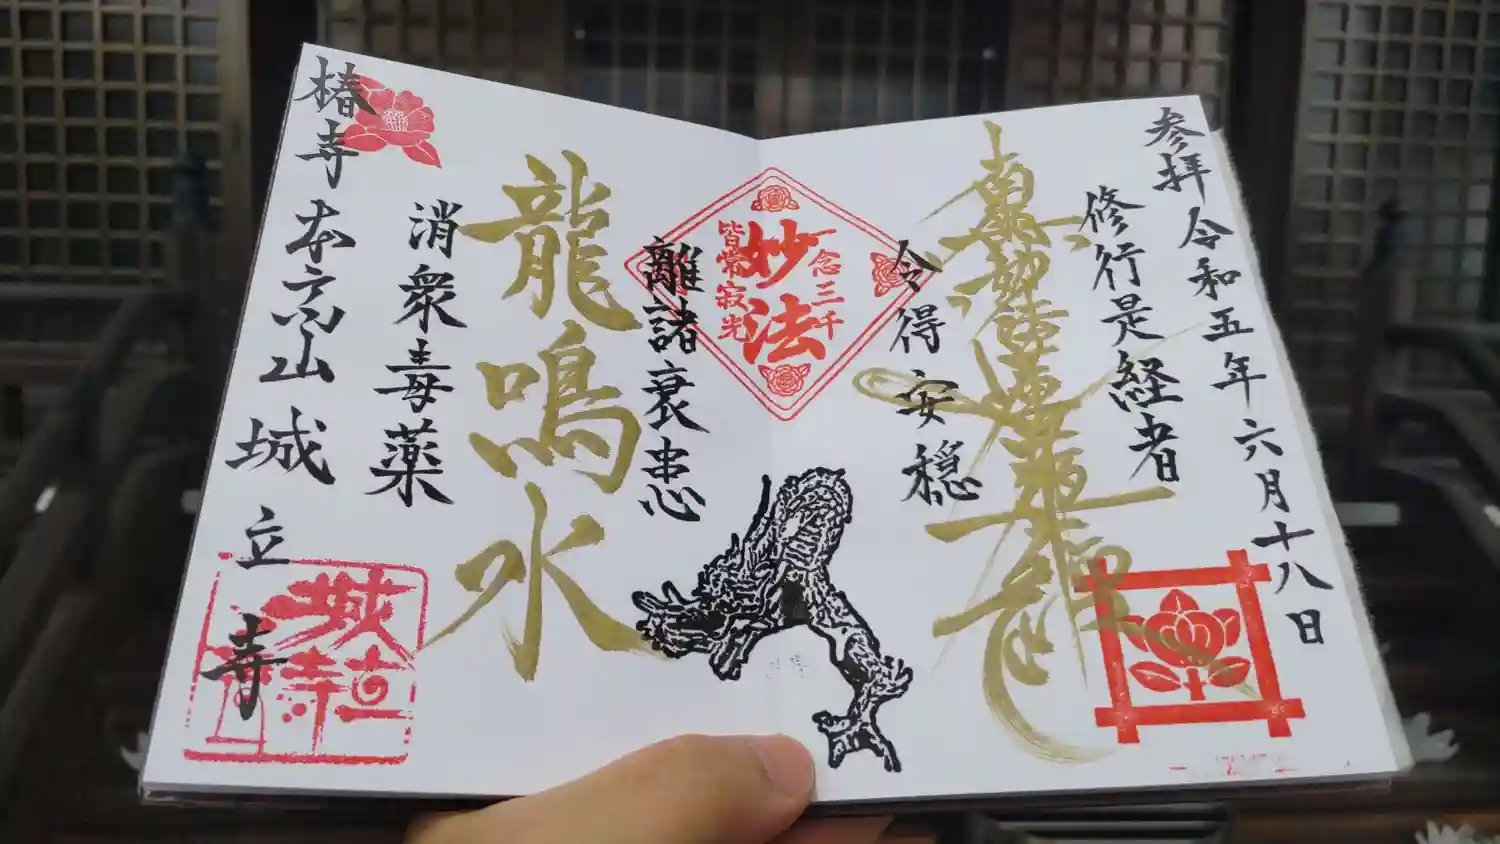 参拝 令和五年六月十八日
修行是経者
南無妙法蓮華経
令得安穏
一念三千
妙法
皆常寂光
離諸衰患
龍鳴水
消衆毒薬
椿寺 本高山 城立寺